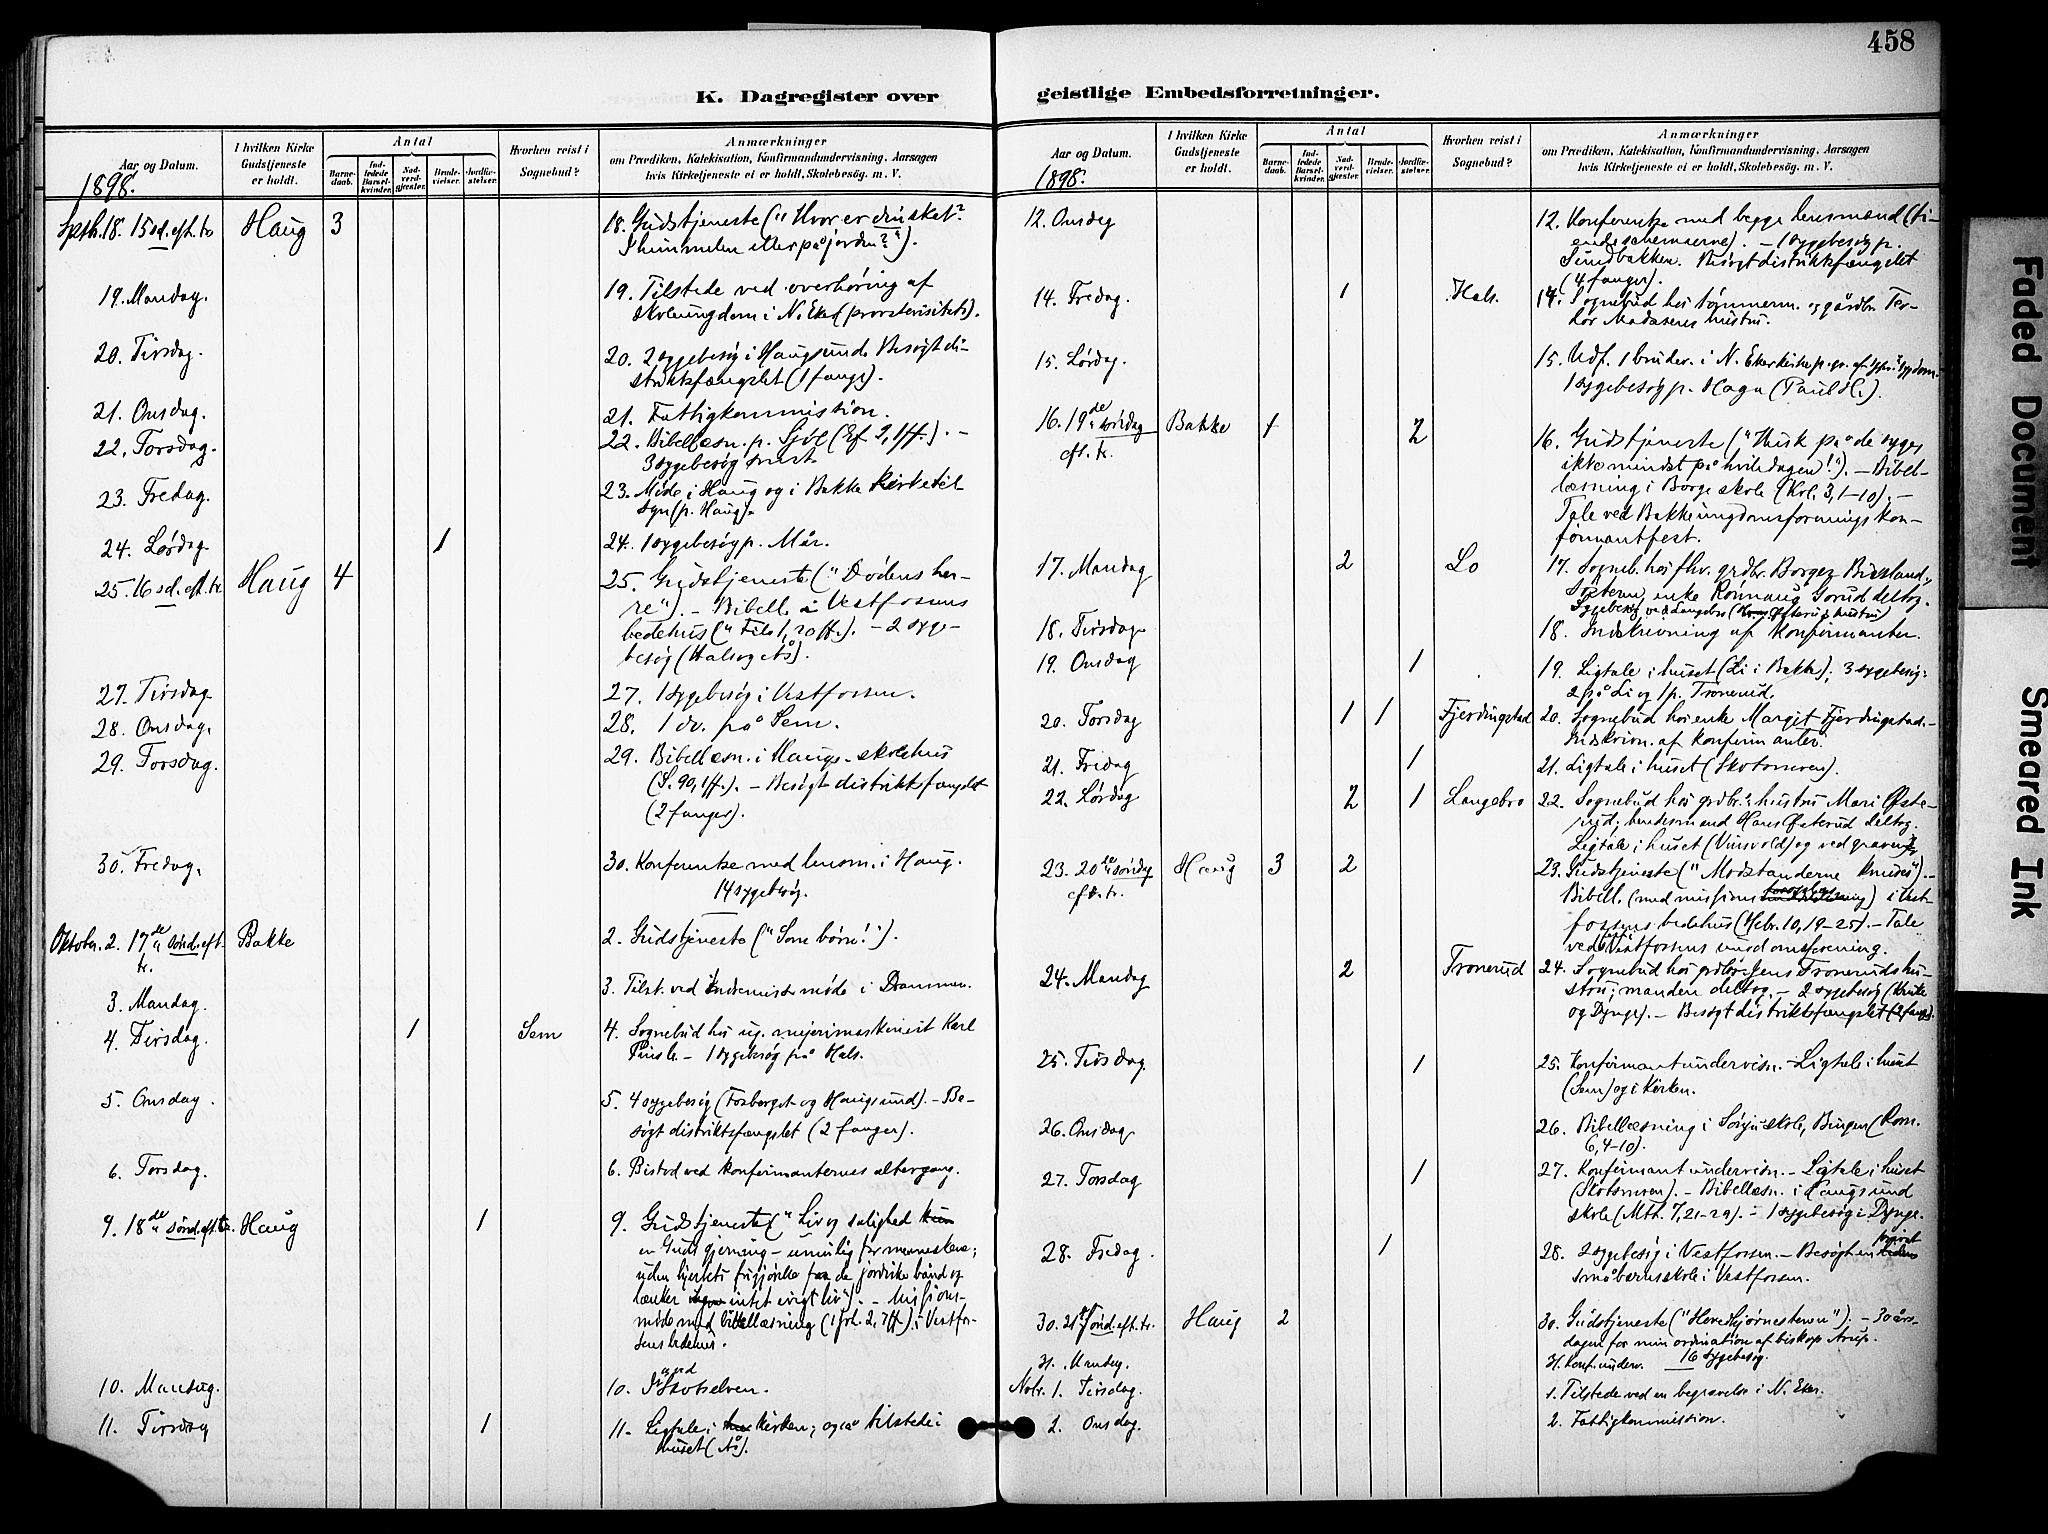 458
K. Dagregister over
geistlige Embedsforretninger.
Aar og Datum.
1898.
I hvilken Kirke Gudstjeneste er holdt.
Antal
Barnedaab.
Indledede Barselkvinder.
Nadverdgjester.
Brudevielser.
Jordfæstelser.
Hvorhen reist i Sognebud?
Anmærkninger
om Prædiken, Katekisation, Konfirmandundervisning, Aarsagen
hvis Kirketjeneste ei er holdt, Skolebesøg. m. V.
Septb. 18. 15 sd. eft. tr Haug 3 18. Gudstjeneste ("Hvor er dit skat?
I himmelen eller på jorden?").
19. Mandag. 19. Tilstede ved overhøring af
skoleungdom i N. Eker (provstevisitats).
20. Tirsdag. 20. 2 sygebesøg i Haugsund. Besøgt di-
striktsfængslet (1 fange).
21. Onsdag. 21. Fattigkommission.
22. Torsdag. 22. Bibellæsn. p. (Ef. 2, 1 ff.). -
3 sygebesøg
23. Fredag. 23. Møde i Haug og i Bakke kirketil
syn (p. Haug).
24. Lørdag 1 24. 1 sygebesøg p. Mår.
25. 16 sd. eft. tr. Haug 4 25. Gudstjeneste ("Dødens her-
re"). - Bibell. i Vestfossens
bedehus (Fil. 1, 20 ff.). - 2 syge-
besøg (Hals og Ås).
27. Tirsdag 27. 1 sygebesøg i Vestfossen.
28. Onsdag. 28. 1 do. på Sem.
29. Torsdag. 29. Bibellæsn. i Haugs skolehus
(S. 90, 1 ff.). - Besøgt distriktsfængslet
(2 fanger).
30. Fredag. 30. Konferentse med lensm. i Haug.
14 sygebesøg.
Oktober. 2. 17de sønd. eft. tr. Bakke 2. Gudstjeneste ("Som børn!").
3. Mandag. 3. Tilst. ved indremissionsmøde i Drammen.
4. Tirsdag. 1 Sem 4. Sognebud hos ug. mejerimaskinist Karl
- 1 sygebesøg på Hals.
5. Onsdag. 5. 4 sygebesøg (Fosberget og Haugsund). - Be-
søgt distriktsfængslet (2 fanger).
6. Torsdag. 6. Bistod ved konfirmanternes altergang.
9. 18de sønd. eft. tr. Haug 1 9. Gudstjeneste ("Liv og salighed
er Guds gjerning - umulig for menneskene;
uden hjertets frigjørelse fra de jordiske bånd og
lænker intet evigt liv"). - Missions-
møde med bibellæsning (1 Joh. 2, 7 ff.) i Vestfos-
sens bedehus.
10. Mandag. 10. I Skotselven.
11. Tirsdag 1 11. Ligtale i kirken; også tilstede i
huset (Ås).
Aar og Datum.
1898.
I hvilken Kirke Gudstjeneste er holdt.
Antal
Barnedaab.
Indledede Barselkvinder.
Nadverdgjester.
Brudevielser.
Jordfæstelser.
Hvorhen reist i Sognebud?
Anmærkninger
om Prædiken, Katekisation, Konfirmandundervisning, Aarsagen
hvis Kirketjeneste ei er holdt, Skolebesøg. m. V.
12. Onsdag 12. Konferentse med begge lensmænd (ti-
endeschemaerne). - 1 sygebesøg p.
Sundbakken. Besøgt distriktsfængslet
(4 fanger).
14. Fredag. 1 Hals. 14. Sognebud hos tømmerm. og gårdbr. Ter-
hustru.
15. Lørdag. 15. Udf. 1 brudev. i N. Eker kirke p. gr. af sygdom.
1 sygebesøg p. Haga (Paul H.).
16. 19de søndag eft. tr. Bakke 1 2 16. Gudstjeneste ("Husk på de syge,
ikke mindst på hviledagen!"). - Bibel-
læsning i Borge skole (Kol. 3, 1-10). -
Tale ved Bakke ungdomsforenings kon-
firmantfest.
17. Mandag 2 Lo 17. Sogneb. hos fhv. grdbr. Borger
Søsteren, enke Rønnaug Sorud deltog.
Sygebesøg ved Langebro (Østeruds hustru)
18. Tirsdag 18. Indskrivning af konfirmanter.
19. Onsdag 1 19. Ligtale i huset (Li i Bakke); 3 sygebesøg:
2 på Li og 1 p. Tronerud.
20. Torsdag 1 1 Fjerdingstad 20. Sognebud hos enke Margit Fjerdingstad. -
Indskrivn. af konfirmanter.
21. Fredag 1 21. Ligtale i huset (Skotselven).
22. Lørdag 2 1 Langebro 22. Sognebud hos grdbr.s hustru Mari Øste-
rud; hendes mand Hans Østerud deltog.
Ligtale i huset (Vinsvold) og ved graven
23. 20de søndag eft. tr. Haug 3 2 23. Gudstjeneste ("Modstanderne knuses"). -
Bibell. (med missions ) i Vest-
fossens bedehus (Hebr. 10, 19-25). - Tale
ved Vestfossens ungdomsforening.
24. Mandag 2 Tronerud 24. Sognebud hos grdbr. Jens Troneruds hu-
stru; manden deltog. - 2 sygebesøg (
og Dynge). - Besøgt distriktsfængslet (2 fanger).
25. Tirsdag 1 25. Konfirmantundervisn. - Ligtale i huset
(Sem) og i kirken.
26. Onsdag 26. Bibellæsning i skole, Bingen (Rom.
6, 4-10).
27. Torsdag 1 27. Konfirmantundervisn. - Ligtale i huset
(Skotselven). - Bibellæsn. i Haugsund
skole (Mth. 7, 21-29). - 1 sygebesøg i Dynge.
28. Fredag. 1 28. 2 sygebesøg i Vestfossen. - Besøgt en privat
småbørnsskole i Vestfossen.
30. 21de sønd. eft. tr. Haug 2 30. Gudstjeneste ("Hovedhjørnestenen"). - 30 års-
dagen for min ordination af biskop Arup.
31. Mandag. 31. Konf. underv. 16 sygebesøg.
Novbr. 1. Tirsdag. 1. Tilstede ved en begravelse i N. Eker.
2. Onsdag. 2. Fattigkommission.
Faded Document
Smeared Ink